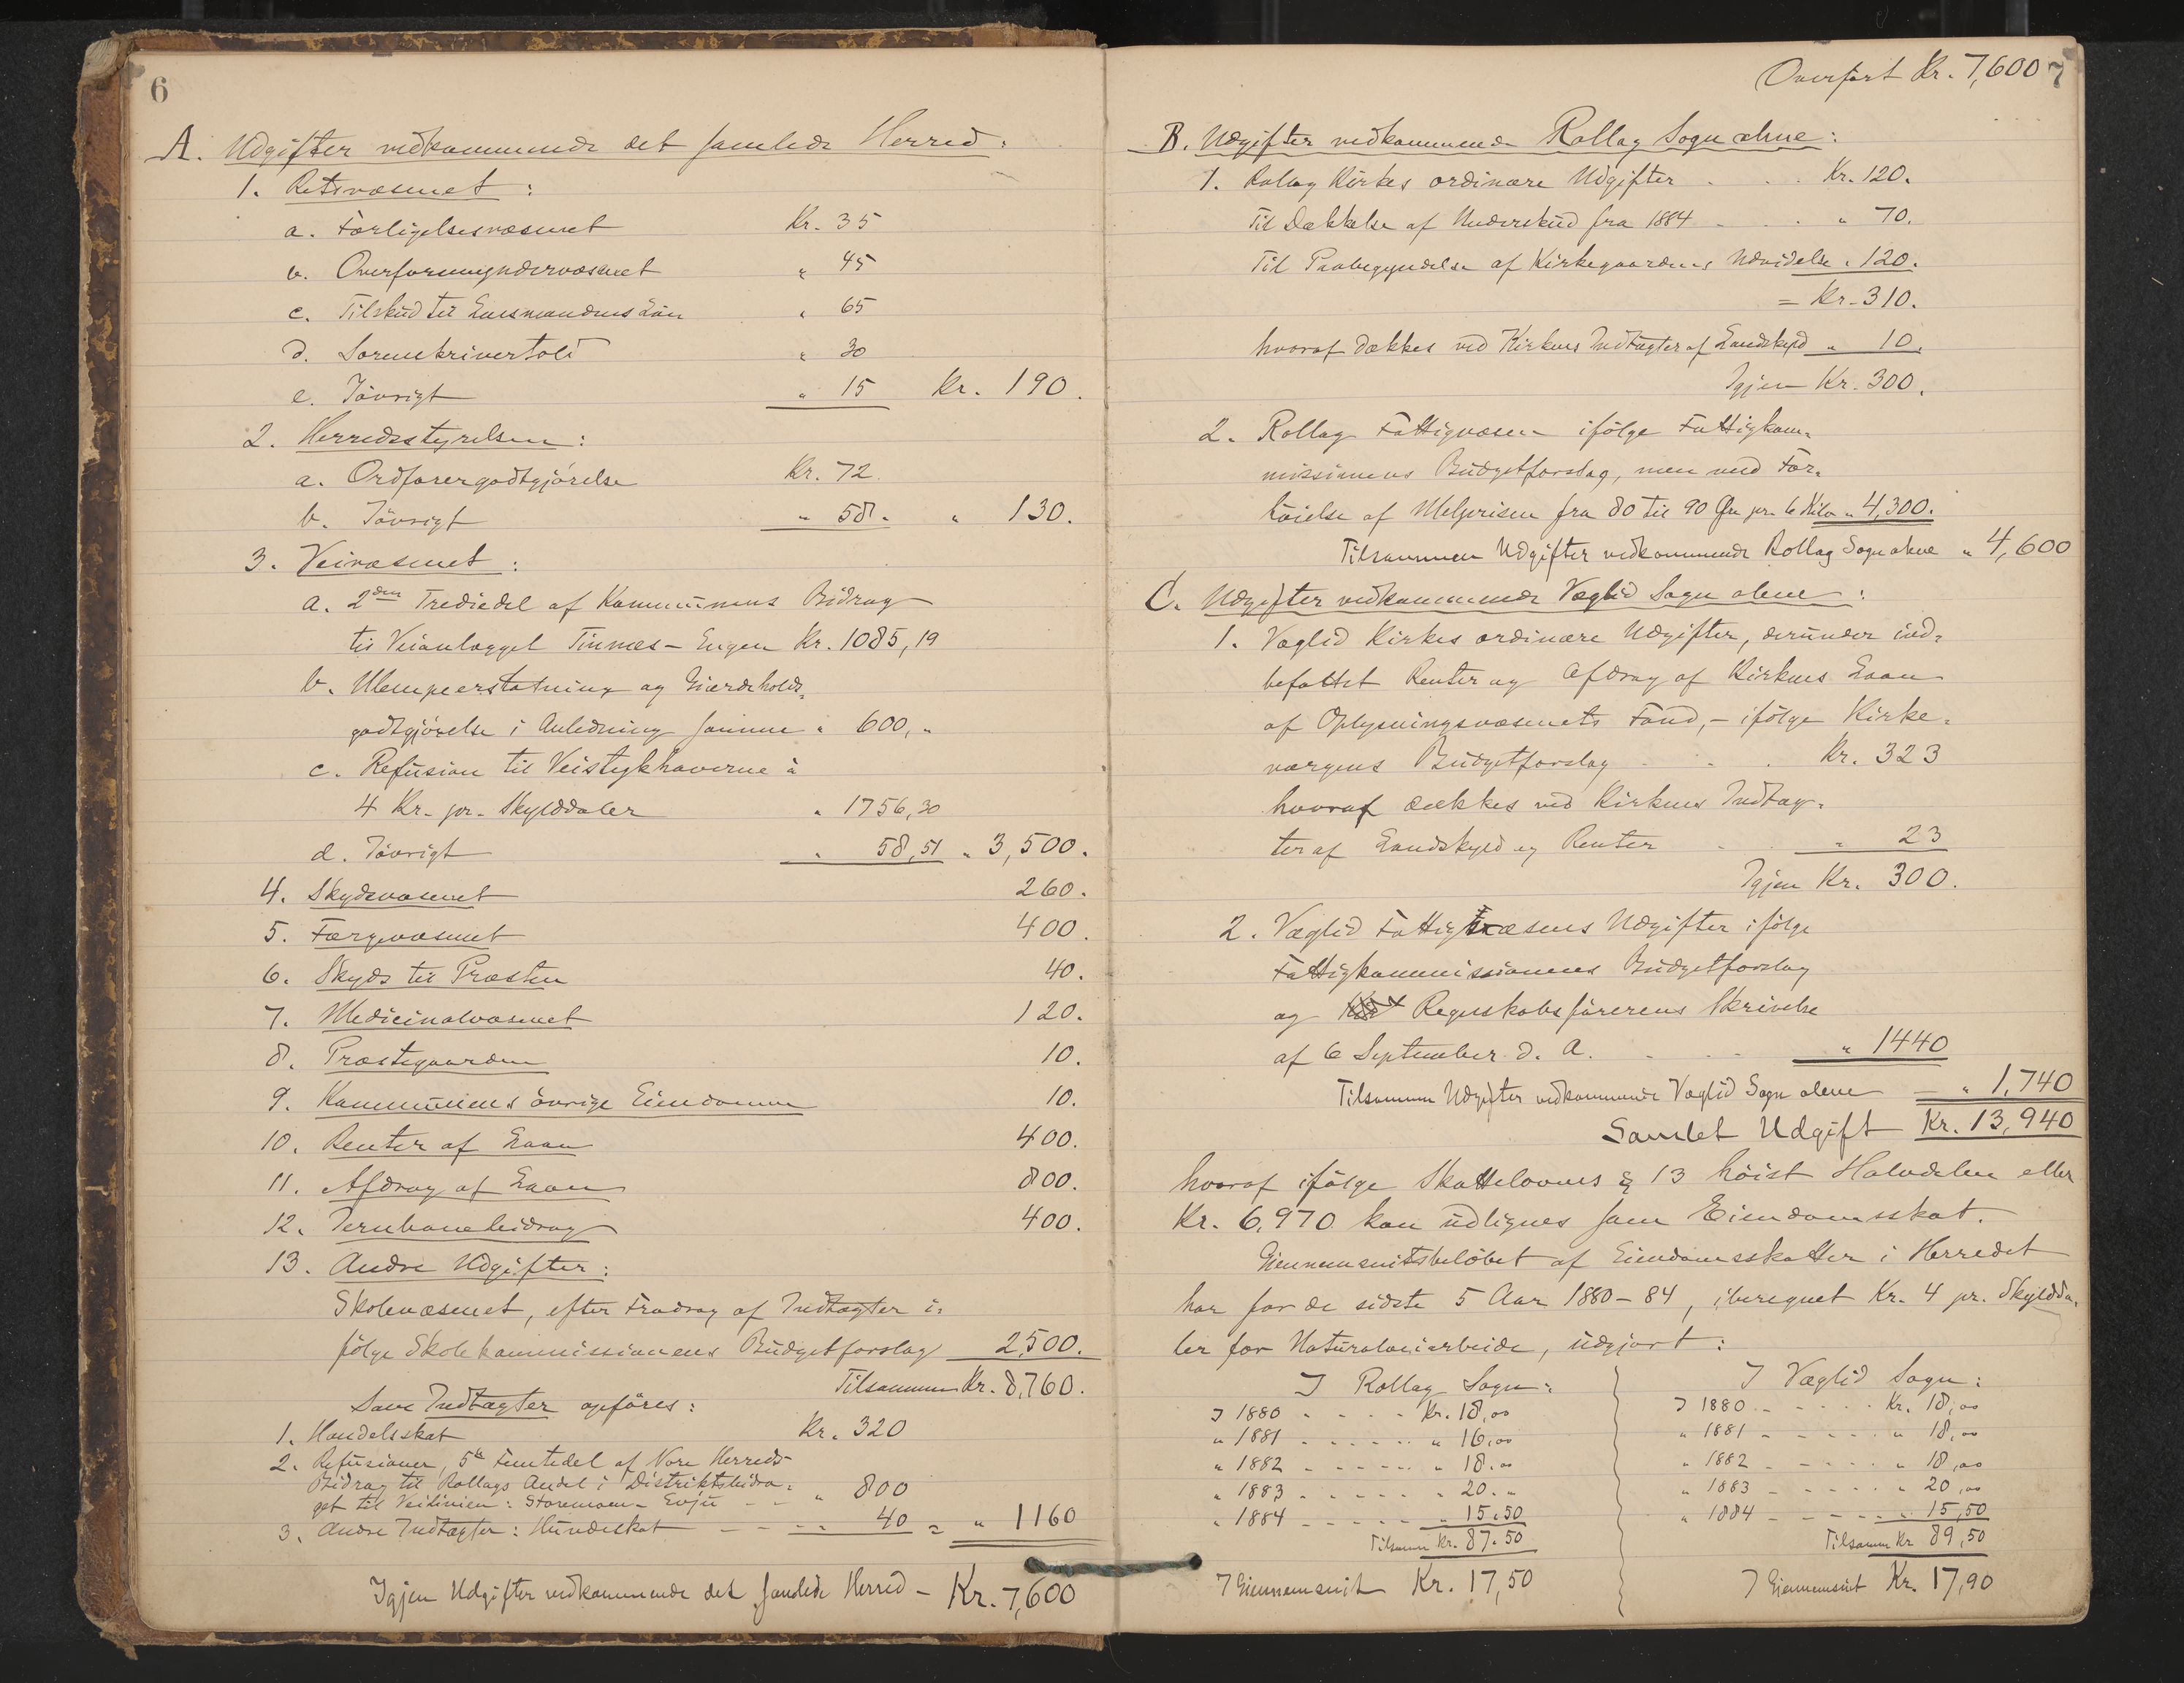 6
A. Udgifter vedkommende det samlede Herred:
1. Retsvæsenet:
a. Forligelsesvæsenet Kr. 35
b. Overformyndervæsenet " 45
c. Tilskud til Lensmandens Løn " 65
d. Sorenskrivertold " 30
e. Iøvrigt " 15 Kr. 190.
2. Herredsstyrelsen:
a. Ordførergodtgjørelse Kr. 72
b. Iøvrigt " 58. " 130.
3. Veivæsenet:
a. 2den Trediedel af Kommunens Bidrag
til Veianlægget Tinnæs - Engen Kr. 1085,19
b. Ulempeerstatning og Gjerdeholds-
godtgjørelse i Anledning samme " 600, "
c. Refusion til Veistykhaverne à
4 Kr. pr. Skylddaler " 1756,30
d. Iøvrigt " 58,51 " 3,500.
4. Skydsvæsenet 260.
5. Færgevæsenet 400.
6. Skyds til Præsten 40.
7. Medicinalvæsenet 120.
8. Præstegaarden 10.
9. Kommunens øvrige Eiendomme 10.
10. Renter af Laan 400.
11. Afdrag af Laan 800.
12. Jernbanebidrag 400.
13. Andre Udgifter:
Skolevæsenet, efter Fradrag af Indtægter i-
følge Skolekommissionens Budgetforslag 2,500.
Tilsammen Kr. 8,760.
Som Indtægter opføres:
1. Handelsskat Kr. 320
2. Refusioner, 5te Femtedel af Nore Herreds-
Bidrag til Rollags Andel i Distriktsbidra-
get til Veilinien: Storemoen - Evju - - " 800
3. Andre Indtægter: Hundeskat - - - " 40 = " 1160
Igjen Udgifter vedkommende det samlede Herred - Kr. 7,600
Overført Kr. 7,600 7
B. Udgifter vedkommende Rollag Sogn alene:
1. Rolag Kirkes ordinære Udgifter . . . Kr. 120.
Til Dækkelse af Underskud fra 1884 - . . " 70.
Til Paabegyndelse af Kirkegaardens Udvidelse " 120.
= Kr. 310.
hvoraf dækkes ved Kirkens Indtægter af Landskyld " 10.
Igjen Kr. 300.
2. Rollag Fattigvæsen ifølge Fattigkom-
missionens Budgetforslag, men med For-
høielse af Melprisen fra 80 til 90 Øre pr. 6 Kilo " 4,300.
Tilsammen Udgifter vedkommende Rollag Sogn alene " 4,600
C. Udgifter vedkommende Væglid Sogn alene:
1. Væglid Kirkes ordinære Udgifter, derunder ind-
befattet Renter og Afdrag af Kirkens Laan
af Oplysningsvæsenets Fond, - ifølge Kirke-
værgens Budgetforslag . . . Kr. 323
hvoraf dækkes ved Kirkens Indtæg-
ter af Landskyld og Renter . " 23
Igjen Kr. 300.
2. Væglid Fattigvæsens Udgifter ifølge
Fattigkommissionens Budgetforslag
og Regnskabsførerens Skrivelse
af 6 September d. A. - - - " 1440
Tilsammen Udgifter vedkommende Væglid Sogn alene - " 1,740
Samlet Udgift Kr. 13,940
hvoraf ifølge Skattelovens § 13 høist Halvdelen eller
Kr. 6,970 kan udlignes som Eiendomsskat.
Gjennemsnitsbeløbet af Eiendomsskatten i Herredet
har for de sidste 5 Aar 1880-84, iberegnet Kr. 4 pr. Skyldda-
ler for Naturalveiarbeide, udgjort:
I Rollag Sogn:
I 1880 - - - - Kr. 18,00
" 1881 - - - - - " 16,00
" 1882 - - - - - " 18.00
" 1883 - - - - - " 20. "
" 1884 - - - - - " 15.50
Tilsamm. Kr. 87.50
I Gjennemsnit Kr. 17,50
I Væglid Sogn:
I 1880 - - - - - Kr. 18,00
" 1881 - - - - - " 18,00
" 1882 - - - - - " 18,00
" 1883 - - - - - " 20,00
" 1884 - - - - - " 15,50
Tilsamm. Kr 89,50
I Gjennemsnit Kr. 17,90